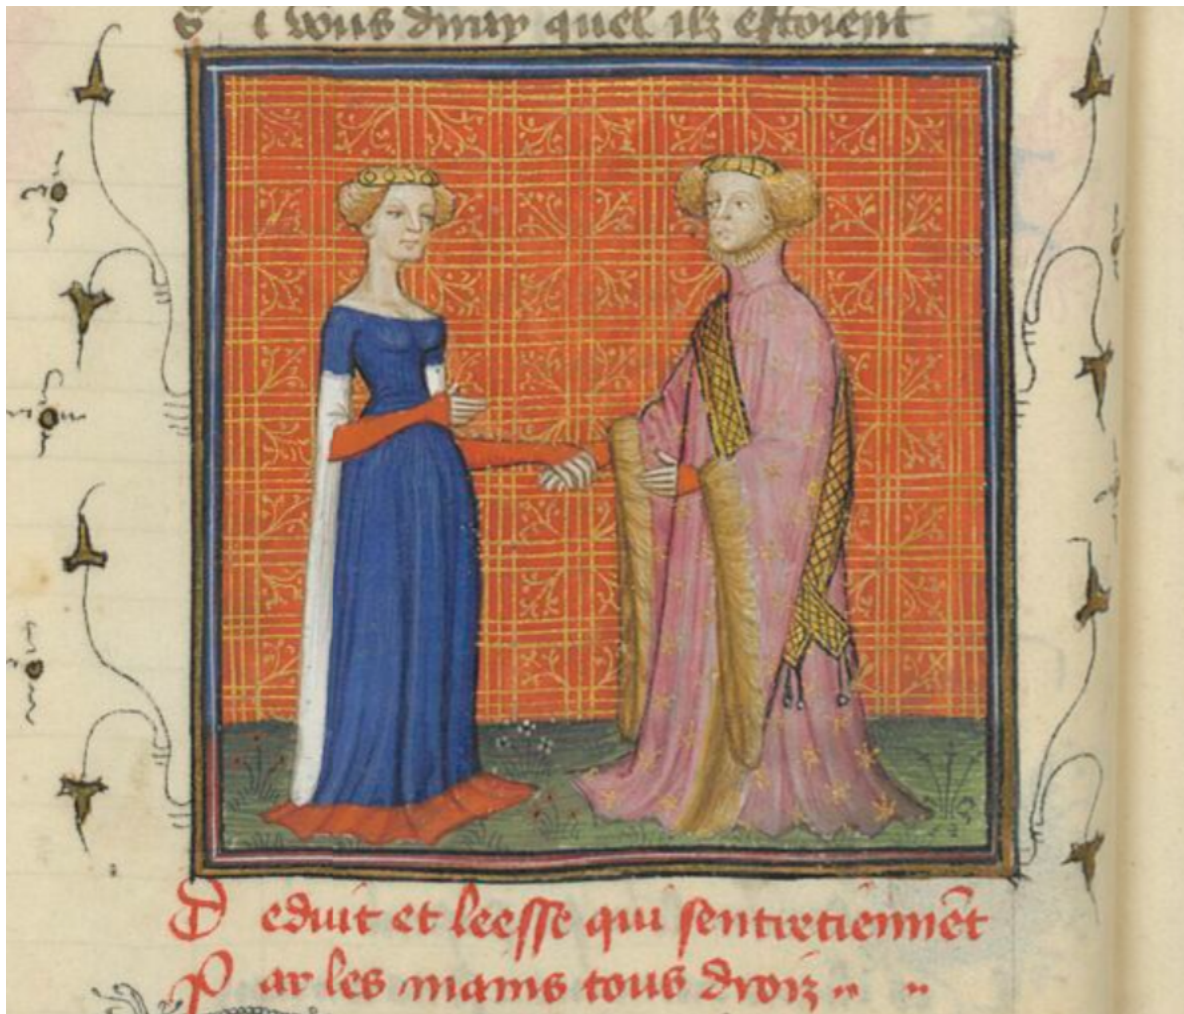 Si vous diray quel ilz estoient
Deduit et leesse qui sentretiennẽt
Par les mains tous droiz